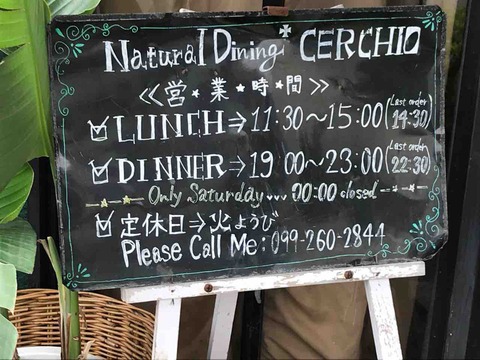 Natural Dining CERCHIO
≪営・業・時・間≫
LUNCH⇒11:30～15:00 (Last order 14:30)
DINNER⇒19:00～23:00 (Last order 22:30)
Only Saturday... 00:00 closed
定休日⇒火ようび
Please Call Me: 099-260-2844